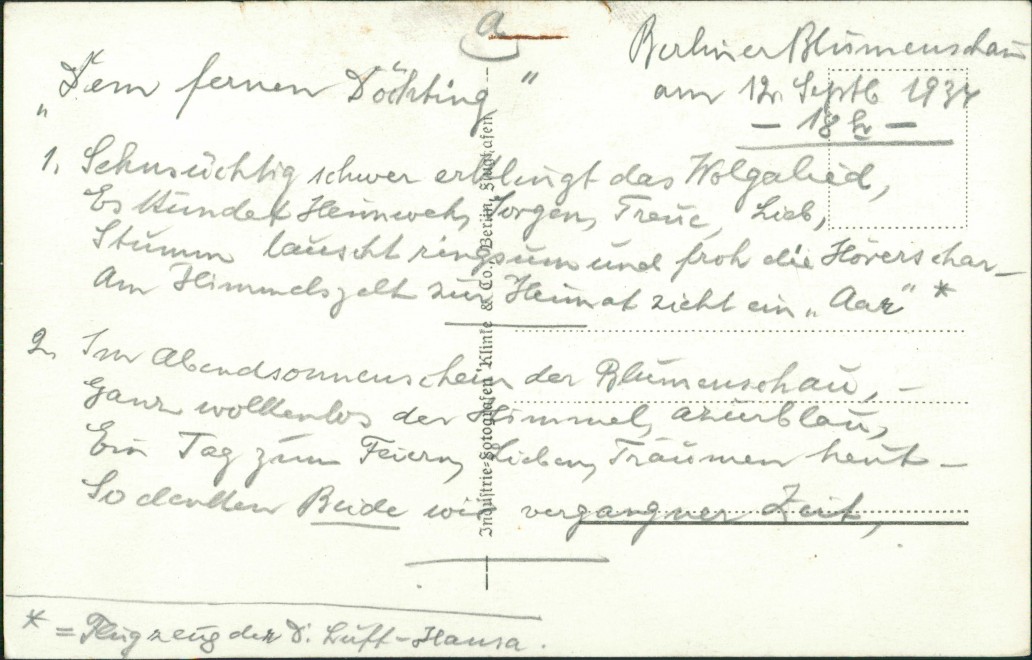 a
Berliner Blumenschau
am 12. Septb 1937
– 18 h –
„Dem fernen Döchting"
1. Sehnsüchtig schwer erklingt das Wolgalied,
Es kündet Heimweh, Sorgen, Treue, Lieb,
Stumm lauscht ringsum und froh die Hörerschar –
Am Himmelszelt zur Heimat zieht ein „Aar" *
2. Im Abendsonnenschein der Blumenschau, –
Ganz wolkenlos der Himmel, azurblau,
Ein Tag zum Feiern, Lieben, Träumen heut –
So denken Beide wir vergangner Zeit,
* = Flugzeug der D. Luft-Hansa.
Industrie-Fotografen Klinke & Co., Berlin, Flughafen